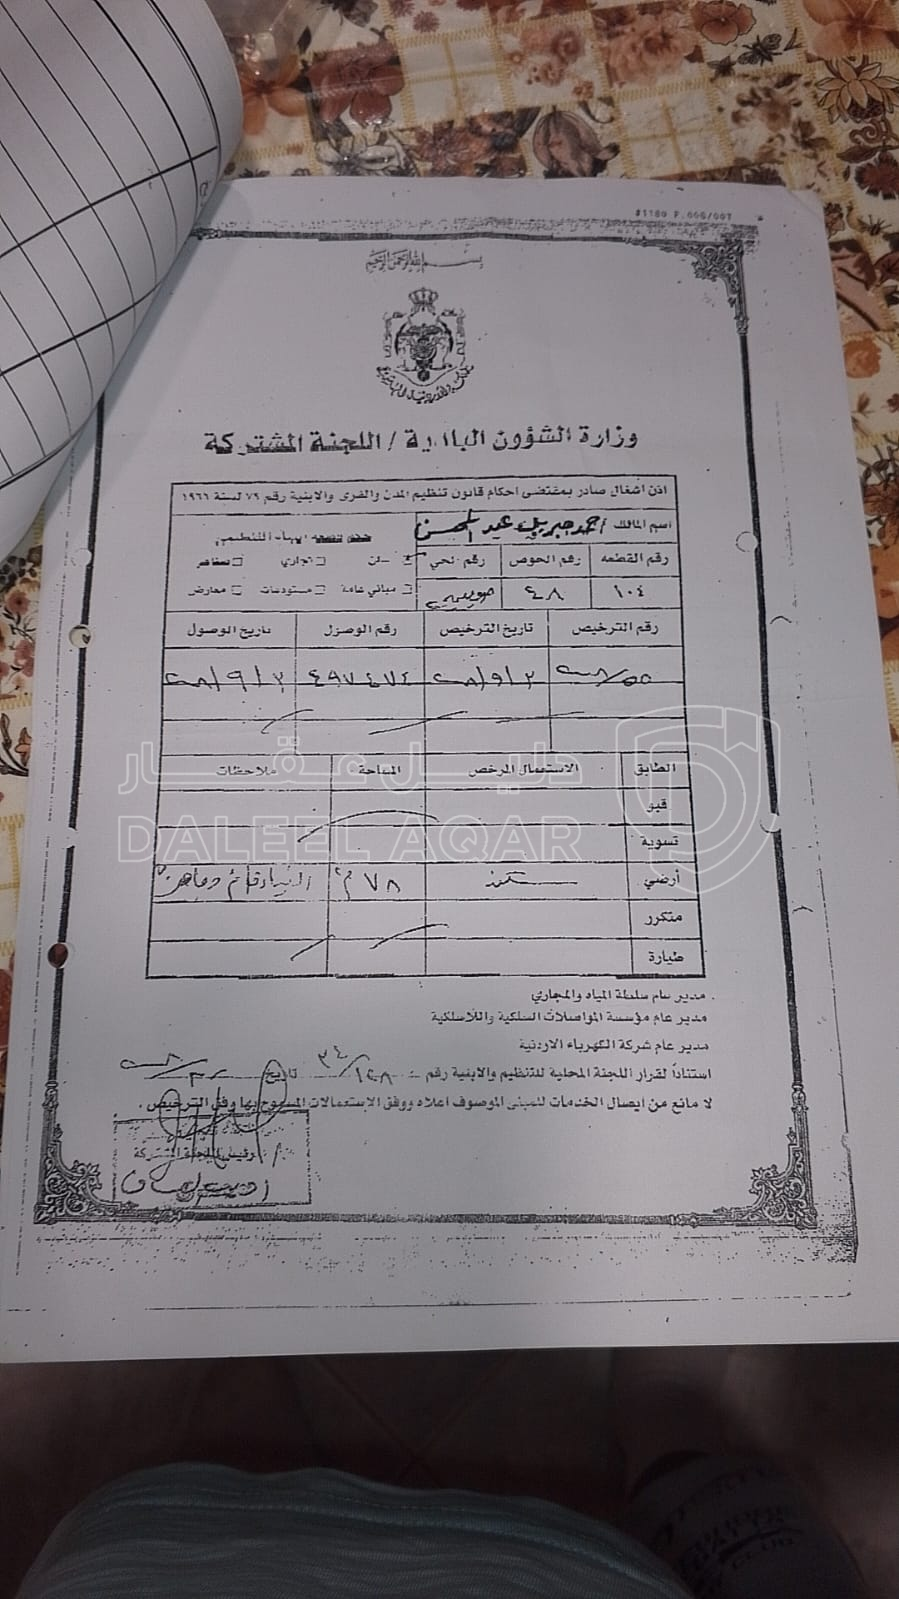 #1180 P.006/007
بسم الله الرحمن الرحيم
وزارة الشؤون البلدية / اللجنة المشتركة
اذن اشغال صادر بمقتضى احكام قانون تنظيم المدن والقرى والابنية رقم ٧٩ لسنة ١٩٦٦
اسم المالك / احمد جبريل عبد المحسن
رقم القطعه رقم الحوض رقم الحي
سكن تجاري
١٠٤ ٤٨
مباني عامة مستودعات معارض
رقم الترخيص تاريخ الترخيص رقم الوصل تاريخ الوصول
٤٩٧٤٧٤
الطابق الاستعمال المرخص المساحة ملاحظات
قبو
تسوية
أرضي سكن ٧٨ م٢ البناء قائم
متكرر
طيارة
دليل عقار
DALEEL AQAR
مدير عام سلطة المياه والمجاري
مدير عام مؤسسة المواصلات السلكية واللاسلكية
مدير عام شركة الكهرباء الاردنية
استناداً لقرار اللجنة المحلية للتنظيم والابنية رقم تاريخ
لا مانع من ايصال الخدمات للمبنى الموصوف اعلاه ووفق الاستعمالات المسموح بها وفق الترخيص .
رئيس اللجنة المشتركة